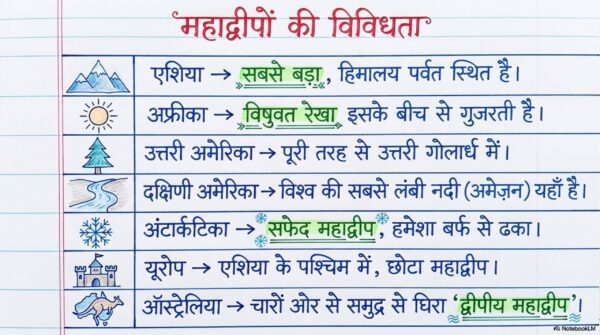 महाद्वीपों की विविधता
एशिया → सबसे बड़ा, हिमालय पर्वत स्थित है।
अफ्रीका → विषुवत रेखा इसके बीच से गुजरती है।
उत्तरी अमेरिका → पूरी तरह से उत्तरी गोलार्ध में।
दक्षिणी अमेरिका → विश्व की सबसे लंबी नदी (अमेज़न) यहाँ है।
अंटार्कटिका → सफेद महाद्वीप, हमेशा बर्फ से ढका।
यूरोप → एशिया के पश्चिम में, छोटा महाद्वीप।
ऑस्ट्रेलिया → चारों ओर से समुद्र से घिरा 'द्वीपीय महाद्वीप'।
NotebookLM